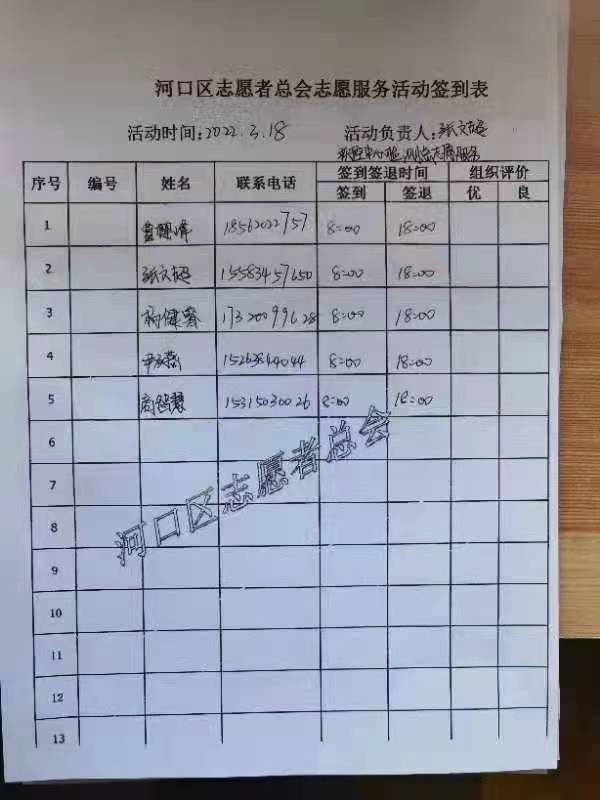 河口区志愿者总会志愿服务活动签到表
活动时间:2022.3.18 活动负责人:张文超
志愿服务
序号 编号 姓名 联系电话 签到签退时间 组织评价
签到 签退 优 良
1 18562022757 8:00 18:00
2 张文超 15583457650 8:00 18:00
3 杨健睿 17320099628 8:00 18:00
4 15263844044 8:00 18:00
5 商智慧 15315030026 8:00 18:00
6
7
8
9
10
11
12
13
河口区志愿者总会